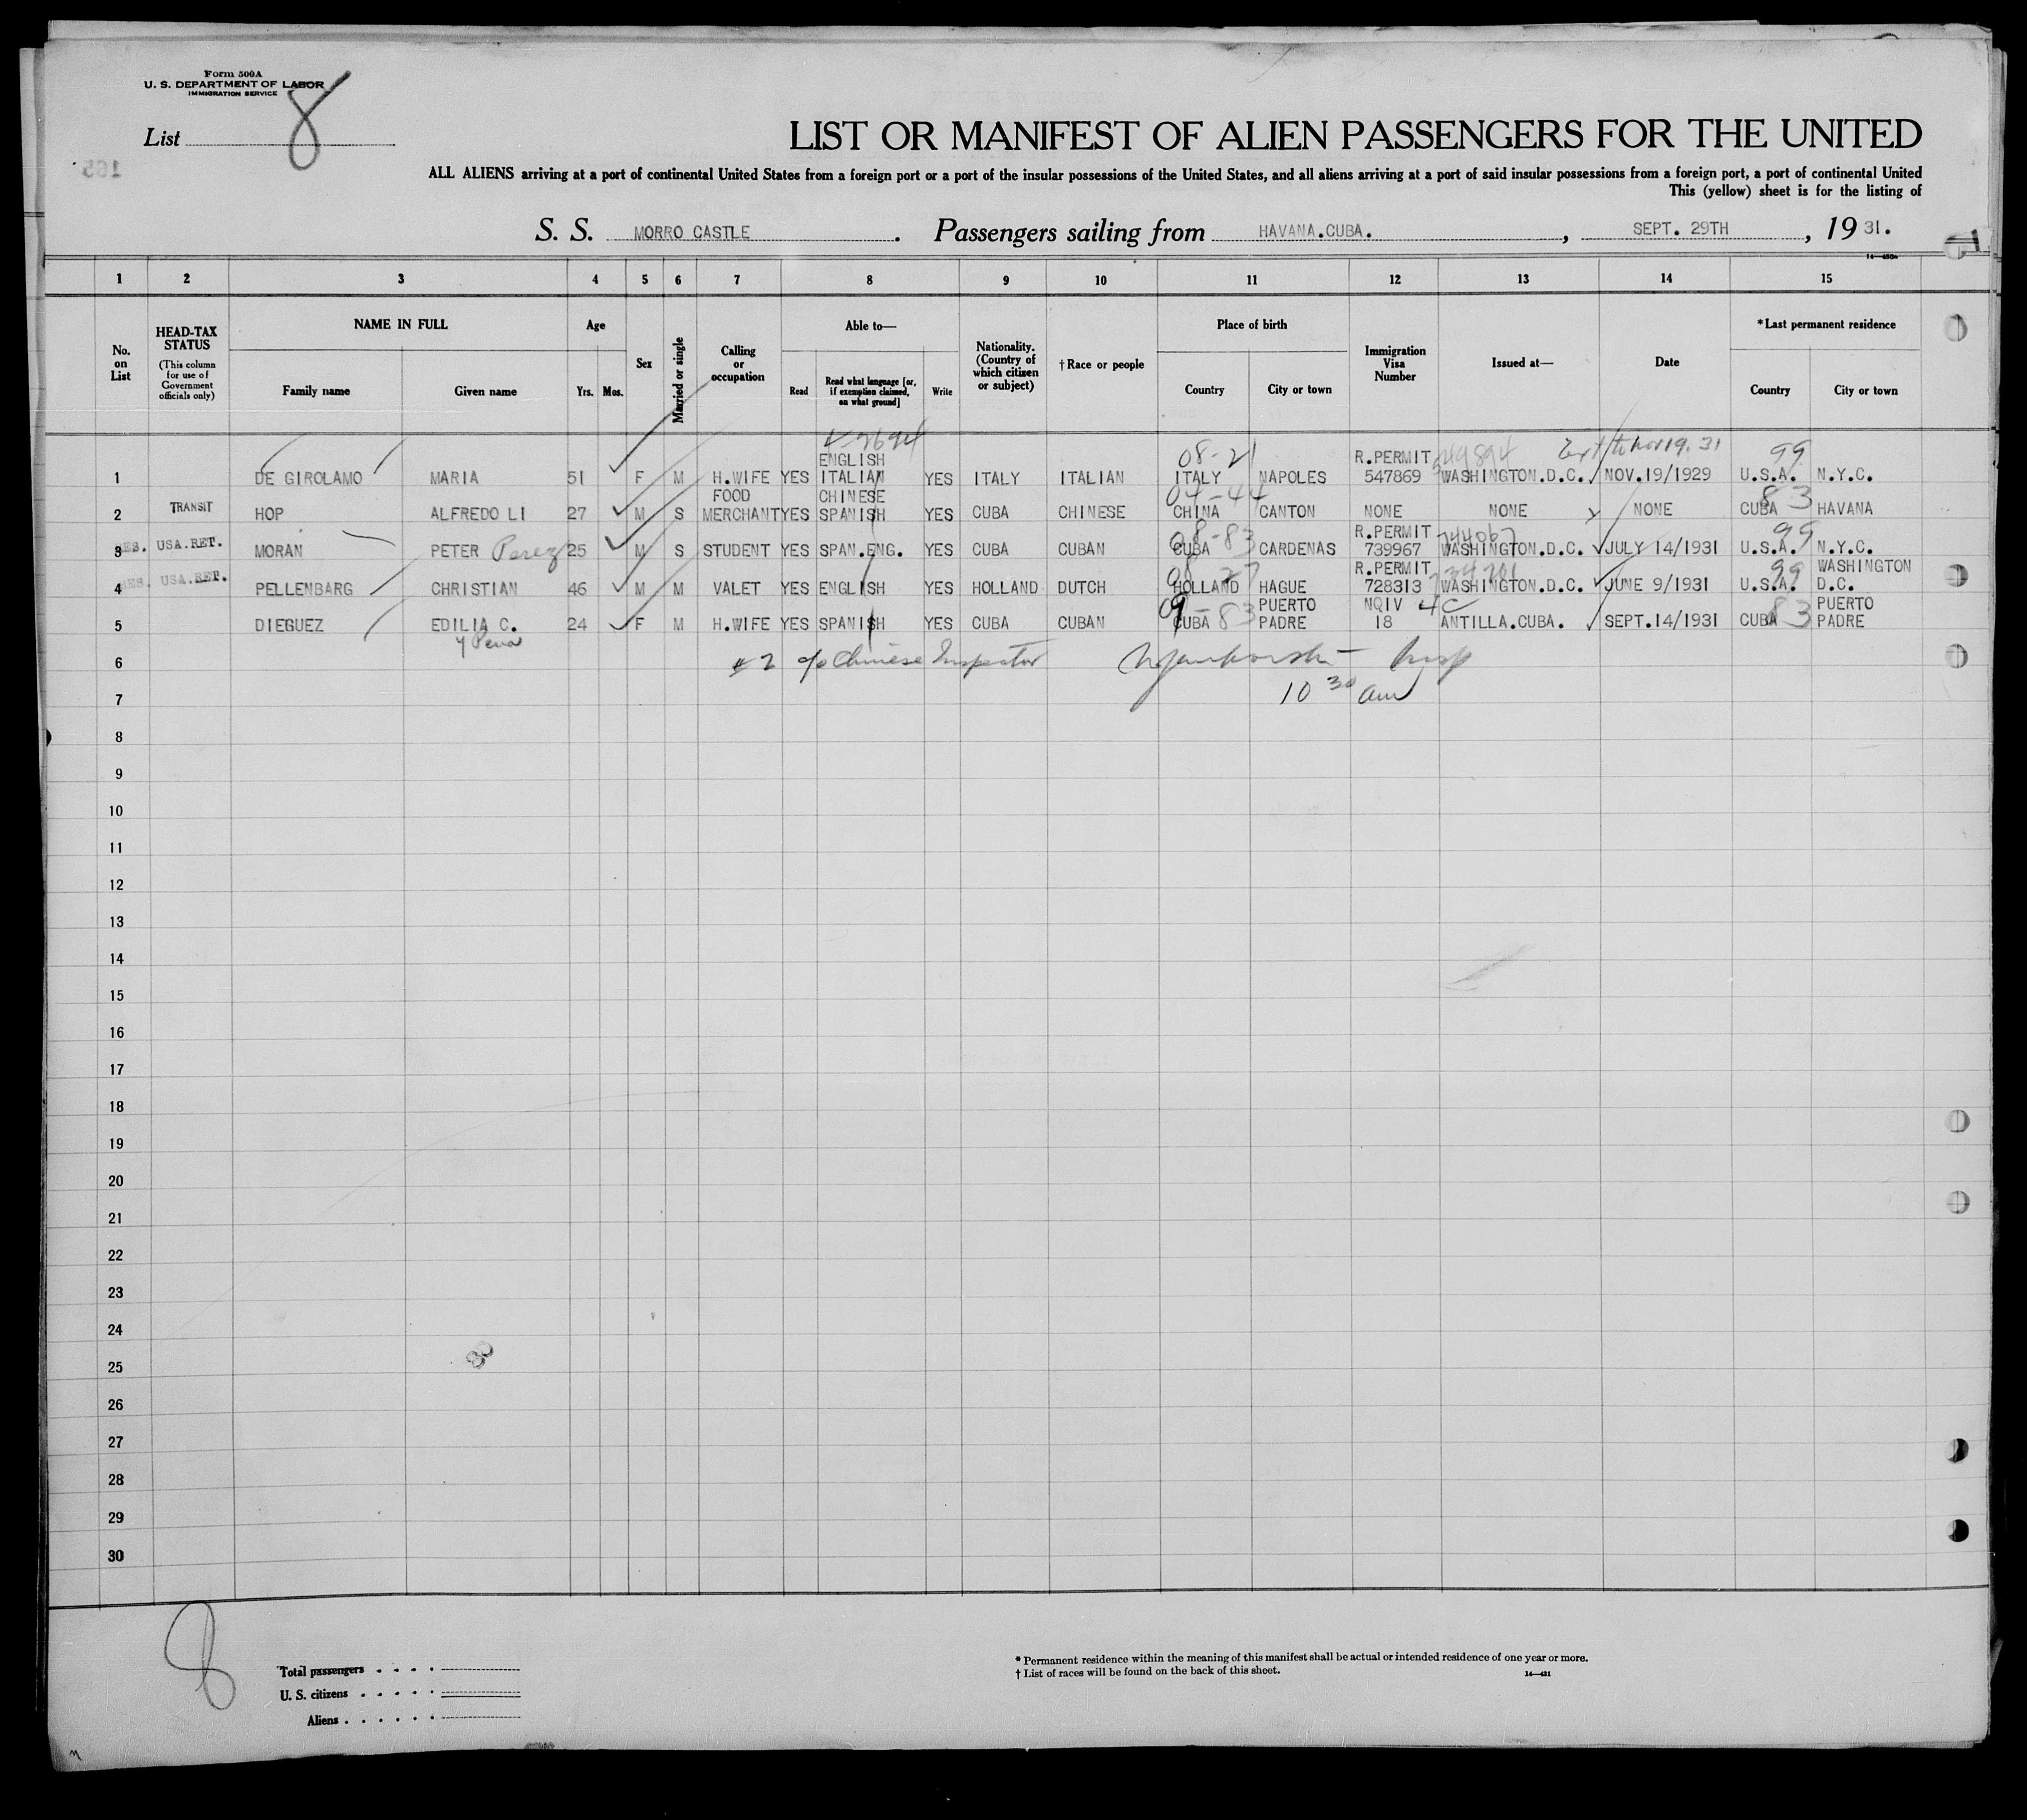 Form 500A
U. S. DEPARTMENT OF LABOR
IMMIGRATION SERVICE
List 8
165
LIST OR MANIFEST OF ALIEN PASSENGERS FOR THE UNITED
ALL ALIENS arriving at a port of continental United States from a foreign port or a port of the insular possessions of the United States, and all aliens arriving at a port of said insular possessions from a foreign port, a port of continental United
This (yellow) sheet is for the listing of
S. S. MORRO CASTLE. Passengers sailing from HAVANA.CUBA., SEPT. 29TH, 19 31.
1 2 3 4 5 6 7 8 9 10 11 12 13 14 15
No. on List
HEAD-TAX STATUS (This column for use of Government officials only)
NAME IN FULL Family name Given name
Age Yrs. Mos.
Sex
Married or single
Calling or occupation
Able to— Read Read what language [or, if exemption claimed, on what ground] Write
Nationality. (Country of which citizen or subject)
†Race or people
Place of birth Country City or town
Immigration Visa Number
Issued at—
Date
*Last permanent residence Country City or town
1 DE GIROLAMO MARIA 51 F M H.WIFE YES ENGLISH ITALIAN YES ITALY ITALIAN 08-21 ITALY NAPOLES R.PERMIT 547869 WASHINGTON.D.C. NOV.19/1929 Ext to Nov 19. 31 99 U.S.A. N.Y.C.
2 TRANSIT HOP ALFREDO LI 27 M S FOOD MERCHANT YES CHINESE SPANISH YES CUBA CHINESE 04-44 CHINA CANTON NONE NONE NONE 83 CUBA HAVANA
3 RES. USA.RET. MORAN PETER Perez 25 M S STUDENT YES SPAN.ENG. YES CUBA CUBAN 08-83 CUBA CARDENAS R.PERMIT 739967 WASHINGTON.D.C. JULY 14/1931 99 U.S.A. N.Y.C.
4 RES. USA.RET. PELLENBARG CHRISTIAN 46 M M VALET YES ENGLISH YES HOLLAND DUTCH 08 27 HOLLAND HAGUE R.PERMIT 728313 WASHINGTON.D.C. JUNE 9/1931 99 U.S.A. WASHINGTON D.C.
5 DIEGUEZ EDILIA C. y Pena 24 F M H.WIFE YES SPANISH YES CUBA CUBAN 09-83 CUBA PUERTO PADRE NQIV 18 4C ANTILLA.CUBA. SEPT.14/1931 83 CUBA PUERTO PADRE
6 #2 c/o Chinese Inspector Insp
7 10 30 am
8
9
10
11
12
13
14
15
16
17
18
19
20
21
22
23
24
25
26
27
28
29
30
8
Total passengers
U. S. citizens
Aliens
* Permanent residence within the meaning of this manifest shall be actual or intended residence of one year or more.
† List of races will be found on the back of this sheet. 14—431